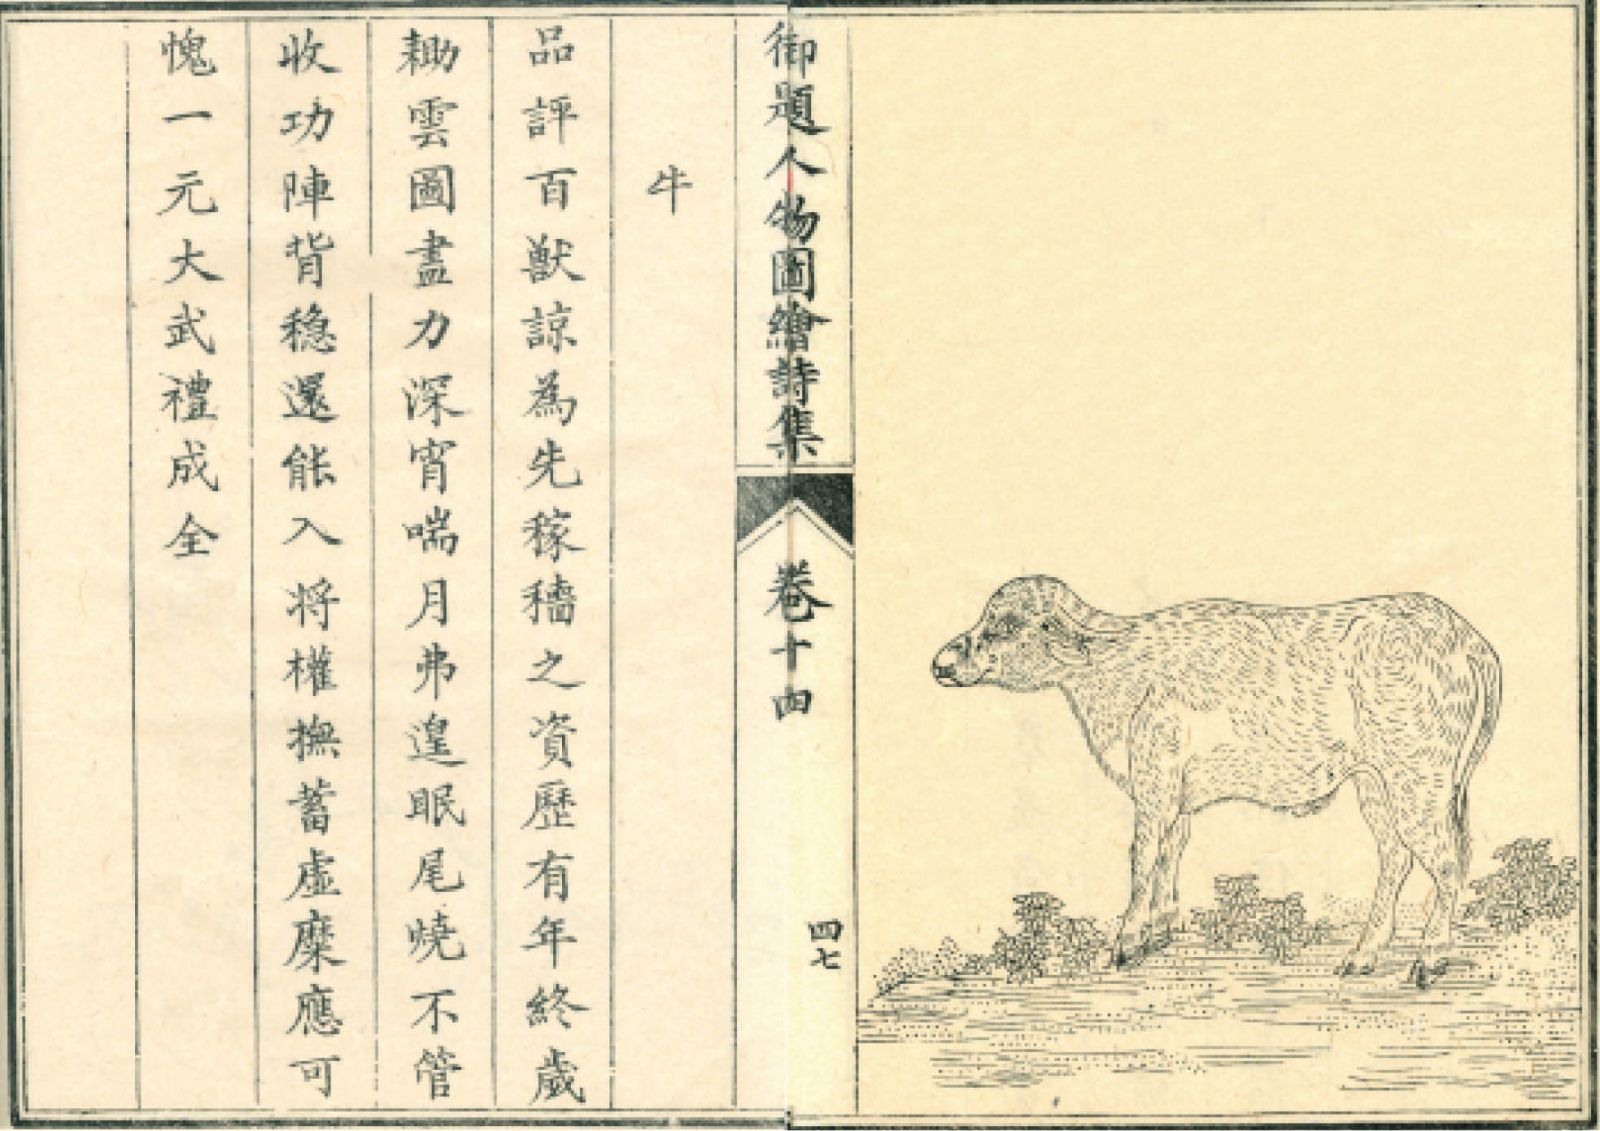 御題人物圖繪詩集
卷十四
四七
牛
品評百獣諒為先稼穡之資歷有年終歲
耡雲圖盡力深宵喘月弗遑眠尾燒不管
收功陣背穏還能入将權撫蓄虛糜應可
愧一元大武禮成全